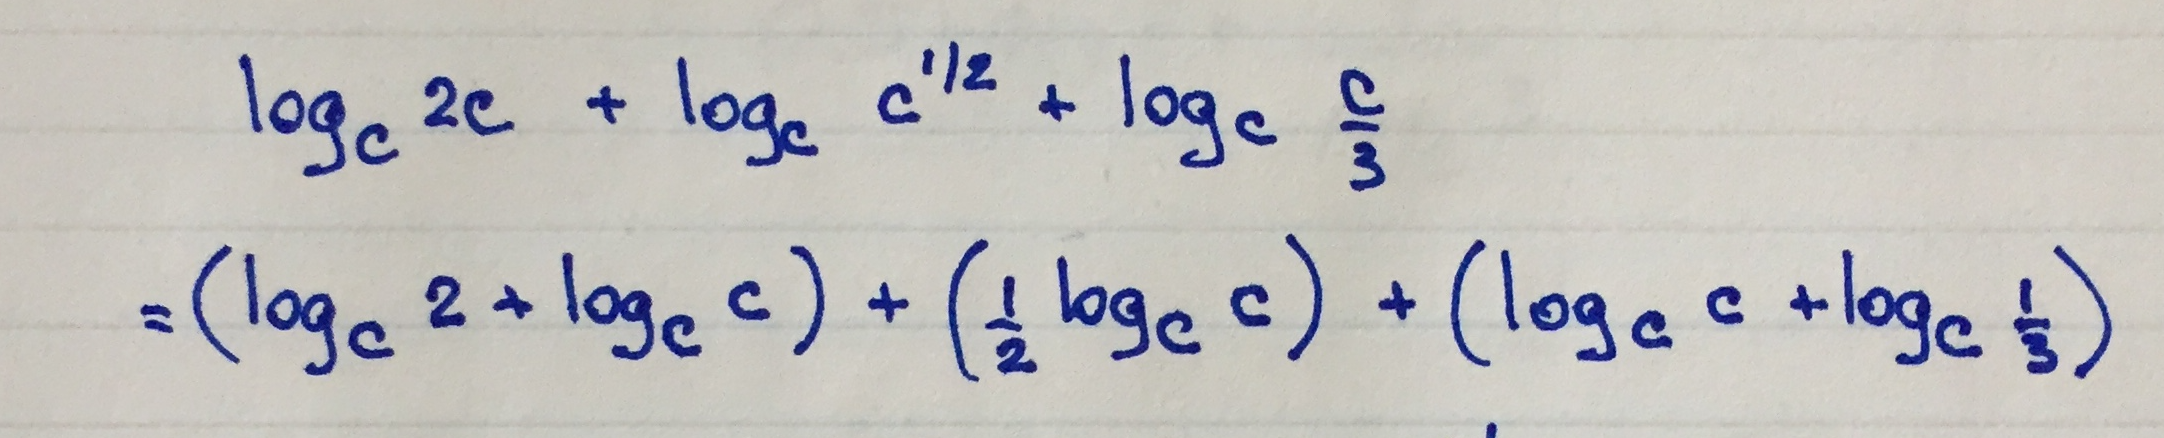 log_c 2c + log_c c^{1/2} + log_c \frac{c}{3}
= (log_c 2 + log_c c) + (\frac{1}{2} log_c c) + (log_c c + log_c \frac{1}{3})